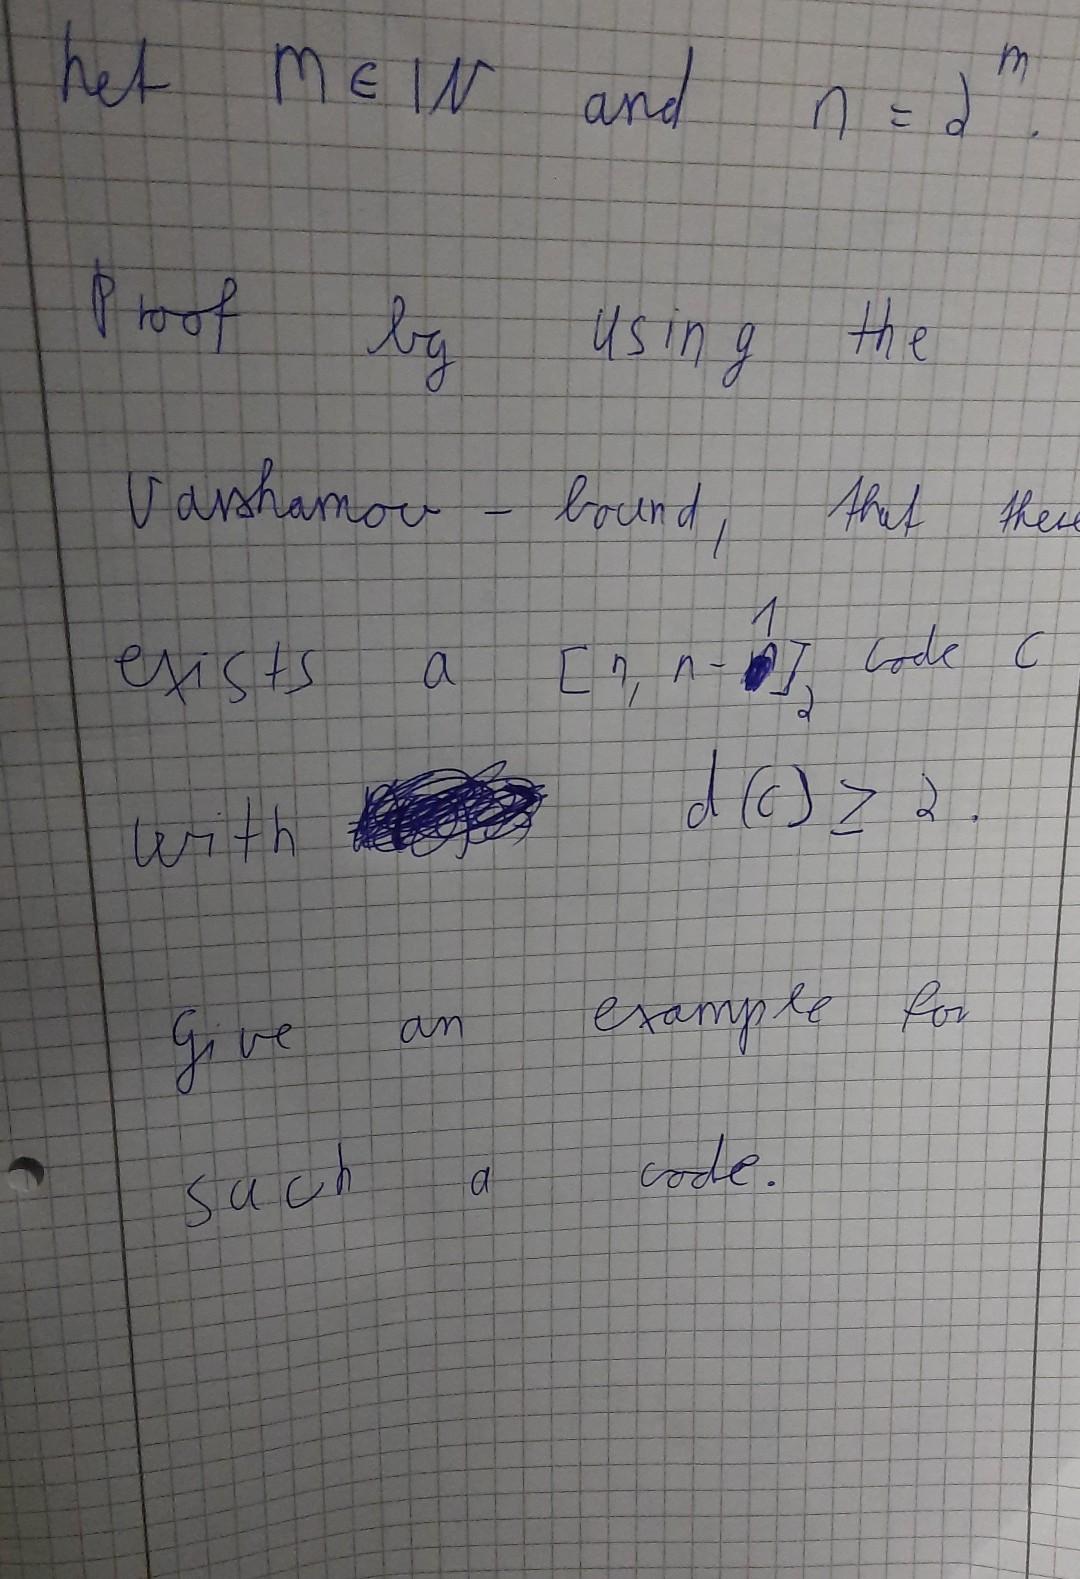 Let m ∈ ℕ and n = 2^m.
Proof by using the
Varshamov - bound, that there
exists a [n, n-1]_2 code C
with d(C) ≥ 2.
Give an example for
such a code.